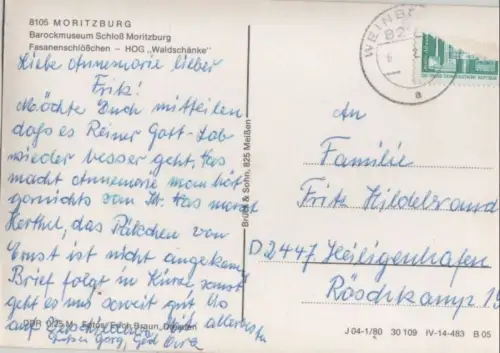 8105 MORITZBURG
Barockmuseum Schloß Moritzburg
Fasanenschlößchen – HOG „Waldschänke“
Liebe Annemarie lieber
Fritz!
Möchte Euch mitteilen
daß es Reiner Gott-Lob
wieder besser geht. Was
macht Annemarie man hört
garnichts vom Was macht
Herthel, das Päkchen von
Ernst ist nicht angekomm
Brief folgt in Kürze, sonst
geht es uns soweit gut
auf
DDR 0,25 M Fotos: Erich Braun, Dresden
Brück & Sohn, 825 Meißen
WEINB
An
Familie
Fritz Hildebrand
D2447 Heiligenhafen
Röschkamp
J 04-1/80 30 109 IV-14-483 B 05